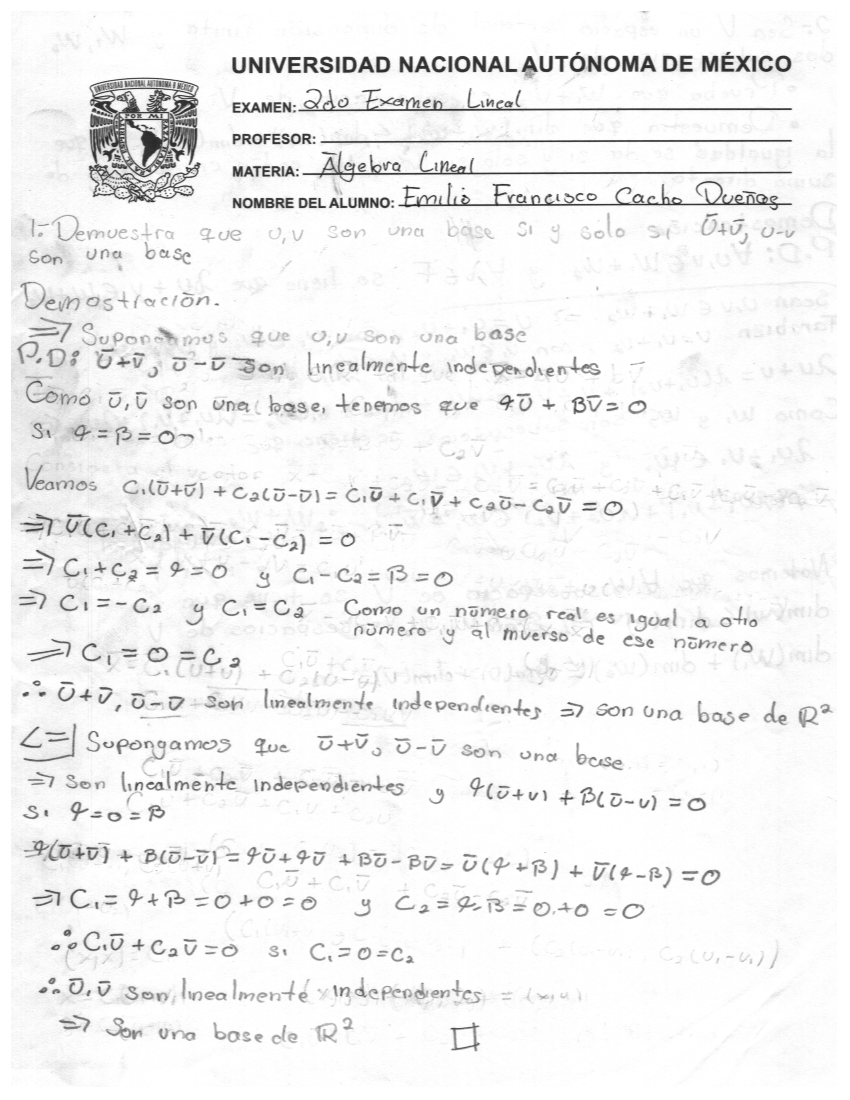 UNIVERSIDAD NACIONAL AUTÓNOMA DE MÉXICO
EXAMEN: 2do Examen Lineal
PROFESOR:
MATERIA: Álgebra Lineal
NOMBRE DEL ALUMNO: Emilio Francisco Cacho Dueñas
1.- Demuestra que u,v son una base si y solo si ū+v̄, ū-v
son una base
Demostración.
=>| Supongamos que u,v son una base
P.D: ū+v̄, ū-v̄ son linealmente independientes
Como ū,v̄ son una base, tenemos que αū + βv̄ = 0
si α=β=0
Veamos C₁(ū+v̄) + C₂(ū-v̄) = C₁ū + C₁v̄ + C₂ū - C₂v̄ = 0
=> ū(C₁+C₂) + v̄(C₁-C₂) = 0
=> C₁+C₂ = α = 0 y C₁-C₂ = β = 0
=> C₁ = -C₂ y C₁ = C₂ Como un número real es igual a otro
número y al inverso de ese número
=> C₁ = 0 = C₂
∴ ū+v̄, ū-v̄ son linealmente independientes => son una base de ℝ²
<=| Supongamos que ū+v̄, ū-v̄ son una base
=> son linealmente independientes y α(ū+v) + β(ū-v) = 0
si α=0=β
α(ū+v̄) + β(ū-v̄) = αū + αv̄ + βū - βv̄ = ū(α+β) + v̄(α-β) = 0
=> C₁ = α+β = 0+0 = 0 y C₂ = α-β = 0+0 = 0
∴ C₁ū + C₂v̄ = 0 si C₁=0=C₂
∴ ū,v̄ son linealmente independientes
=> Son una base de ℝ² □